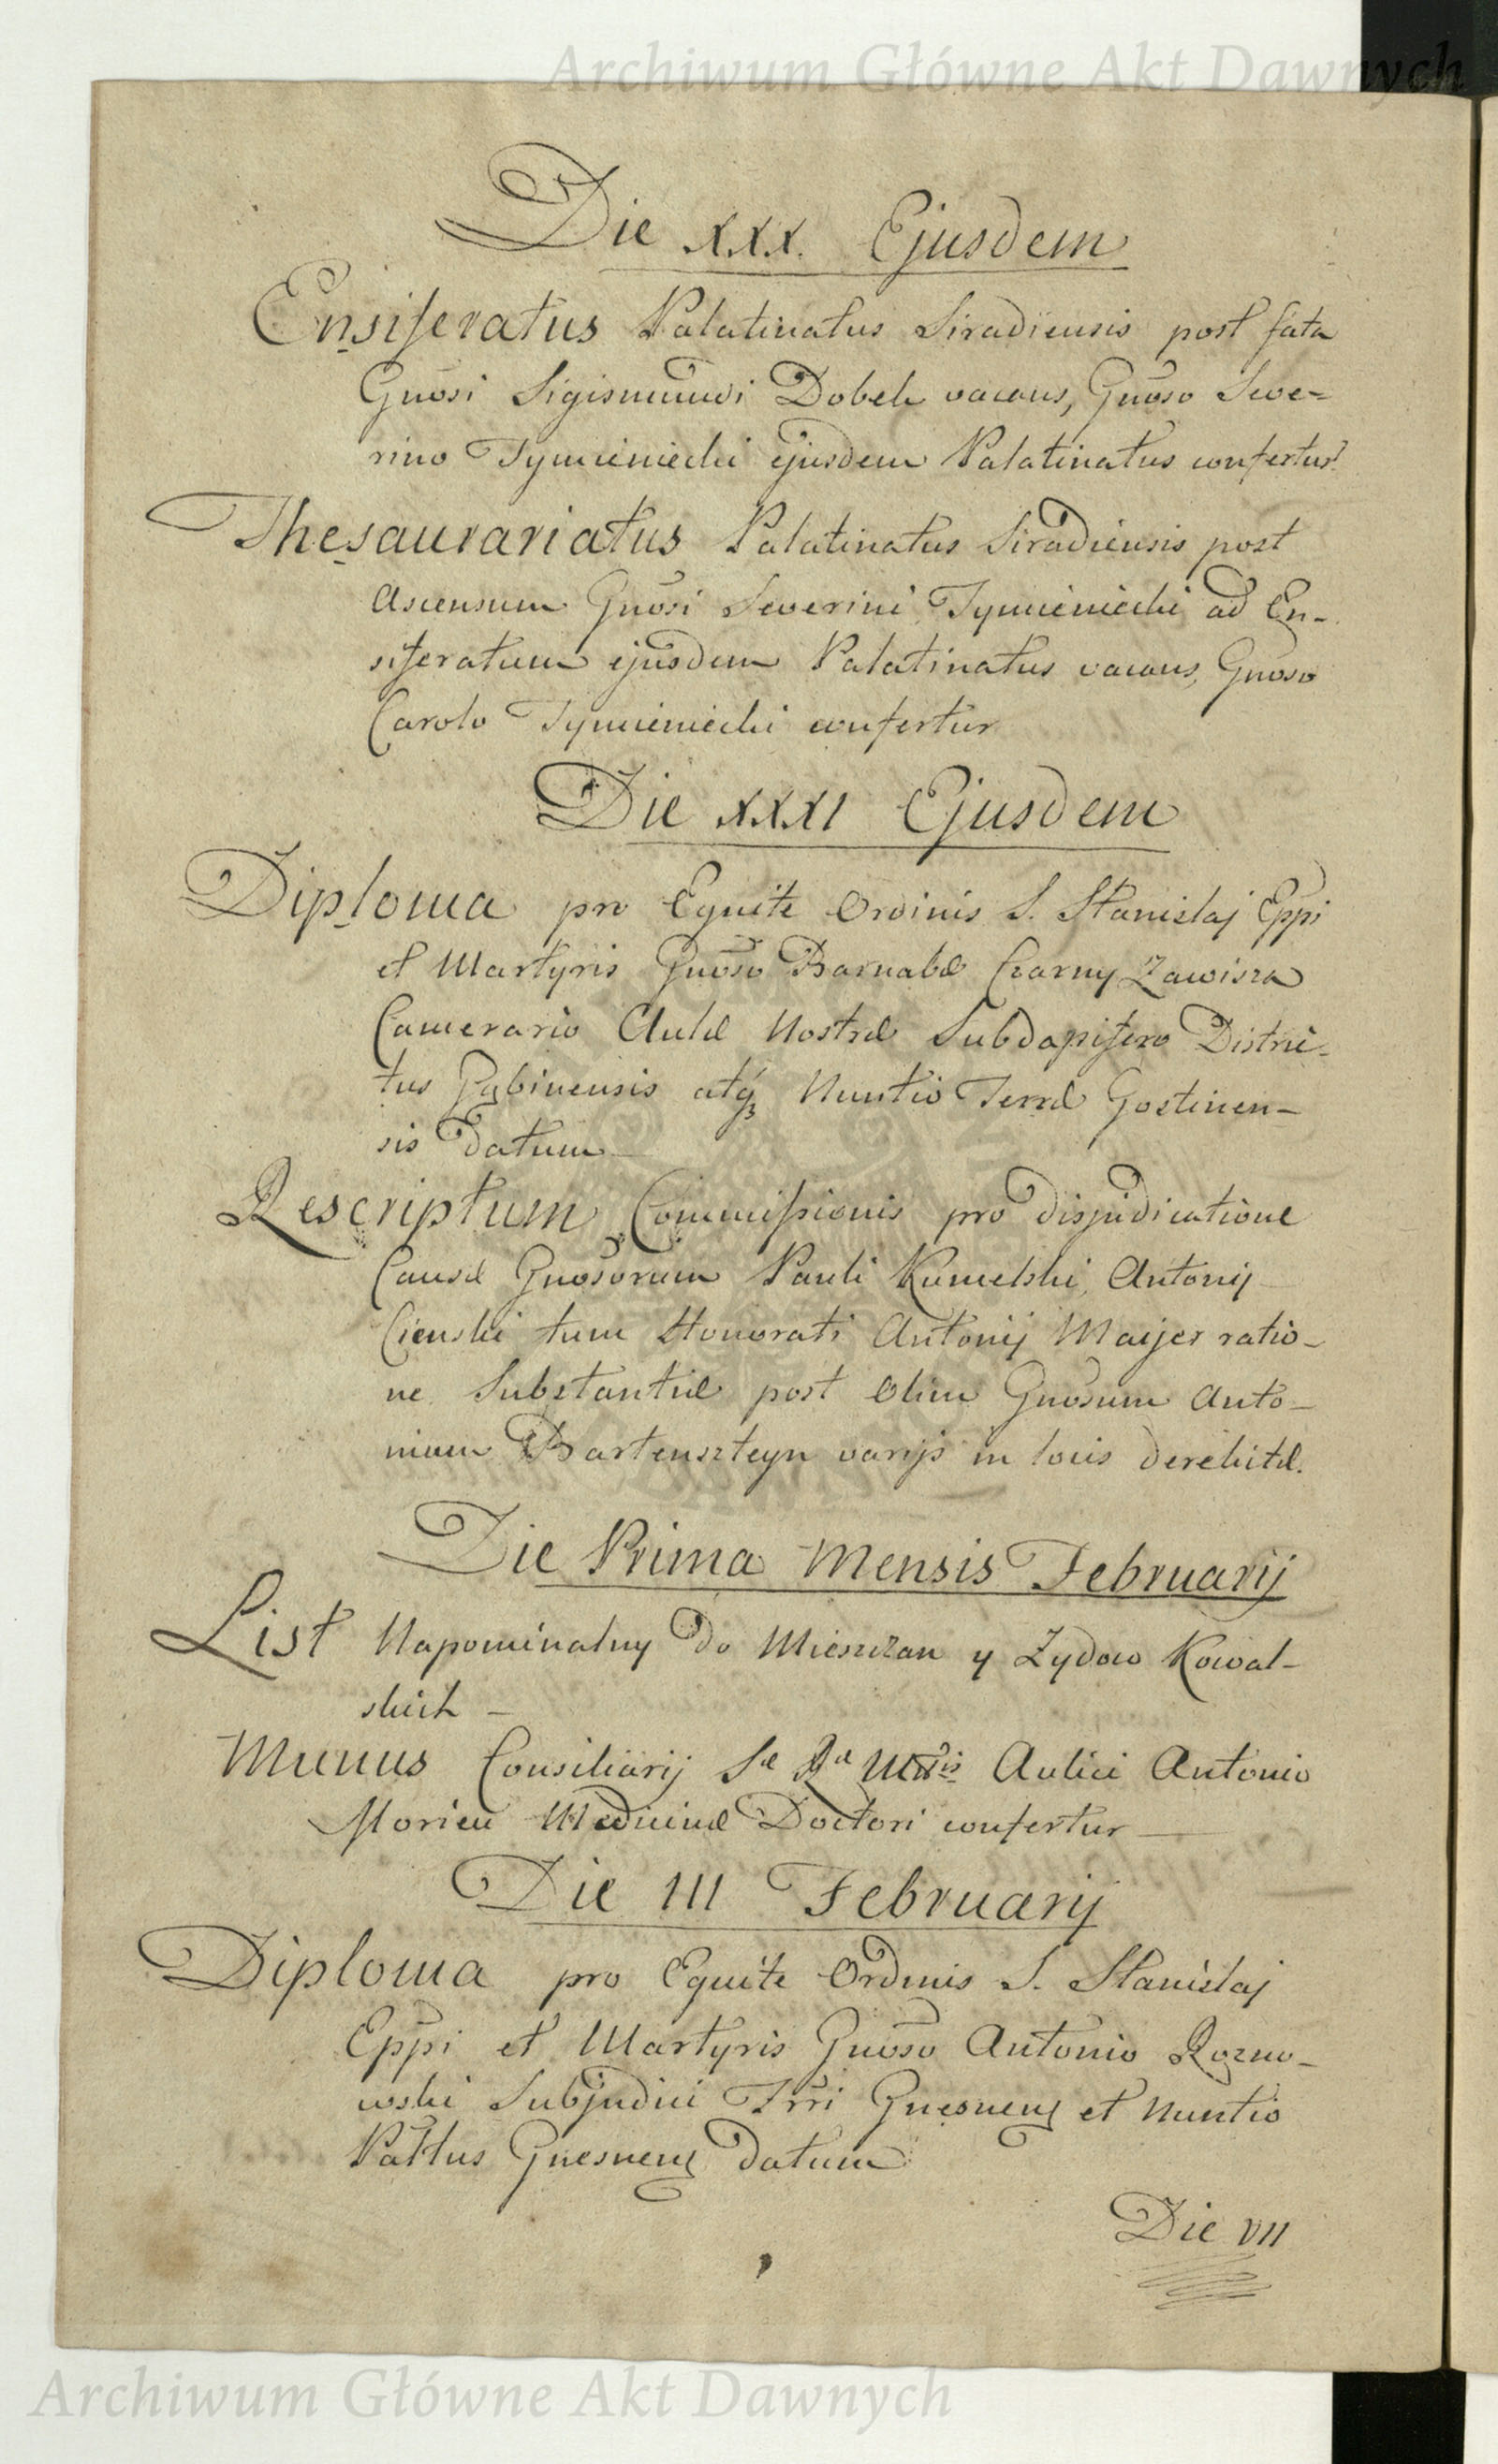 Archiwum Główne Akt Dawnych
Die XXX. Ejusdem
Ensiferatus Palatinatus Siradiensis post fata
Gnosi Sigismundi Dobek vacans, Gnoso Seve=
rino Tymieniecki ejusdem Palatinatus confertur
Thesaurariatus Palatinatus Siradiensis post
Ascensum Gnosi Severini Tymieniecki ad En-
siferatum ejusdem Palatinatus vacans, Gnoso
Carolo Tymieniecki confertur
Die XXXI Ejusdem
Diploma pro Equite Ordinis S. Stanislaj Eppi
et Martyris Gnoso Barnabæ Czarny Zawisza
Camerario Aulæ Nostræ Subdapifero Distric-
tus Gąbinensis atq₃ Nuntio Terræ Gostinen-
sis datum
Rescriptum Commissionis pro disjudicatione
Causæ Gnosorum Pauli Kumelski, Antonij
Cienski tum Honorati Antonij Maijer ratio-
ne Substantiæ post olim Gnosum Anto-
nium Bartenszteyn varijs in locis derelictæ.
Die Prima Mensis Februarij
List Napominalny do Mieszczan y Zydow Kowal-
skich -
Munus Consiliarij Sæ Ræ Mttis Aulici Antonio
Medicinæ Doctori confertur
Die III Februarij
Diploma pro Equite Ordinis S. Stanislaj
Eppi et Martyris Gnoso Antonio Rozno-
wski Subjudici Trri Gnesnens et Nuntio
Palttus Gnesnens datum
Die VII
Archiwum Główne Akt Dawnych